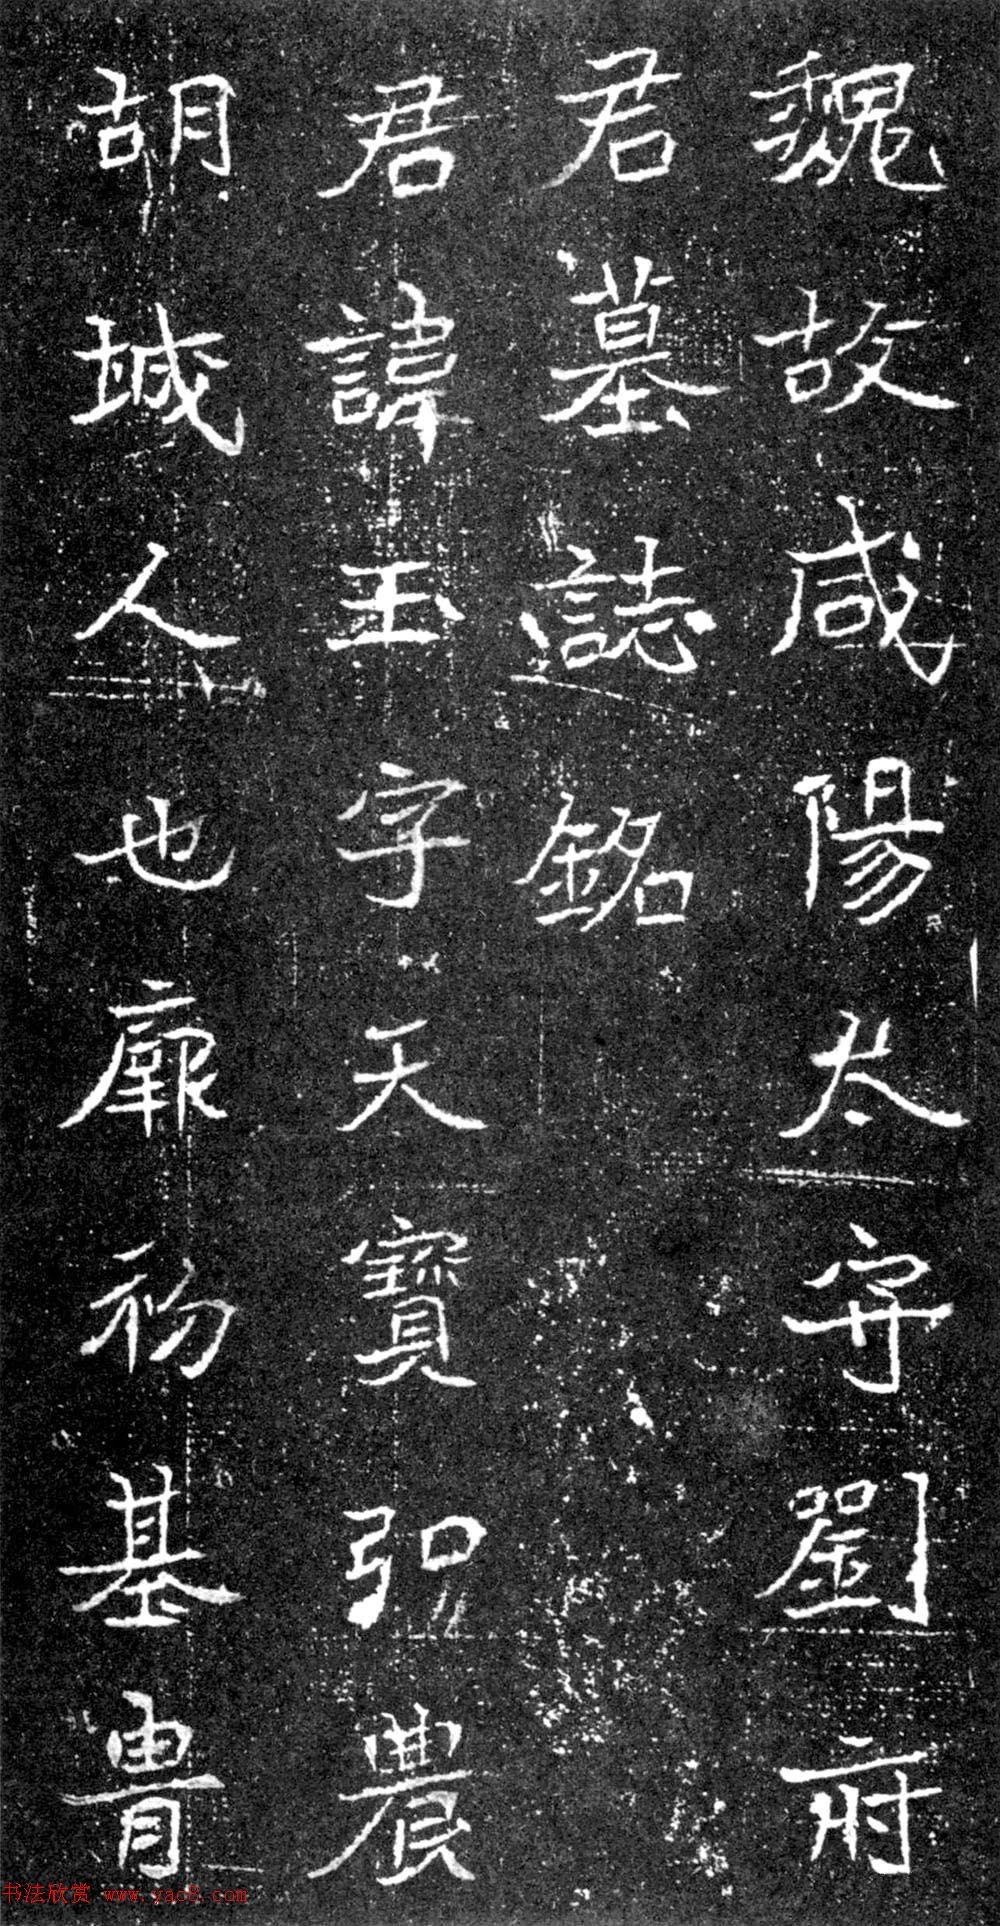 魏故咸陽太守劉府
君墓誌銘
君諱玉字天寶弘農
胡城人也厥初基胄
书法欣赏 www.yac8.com